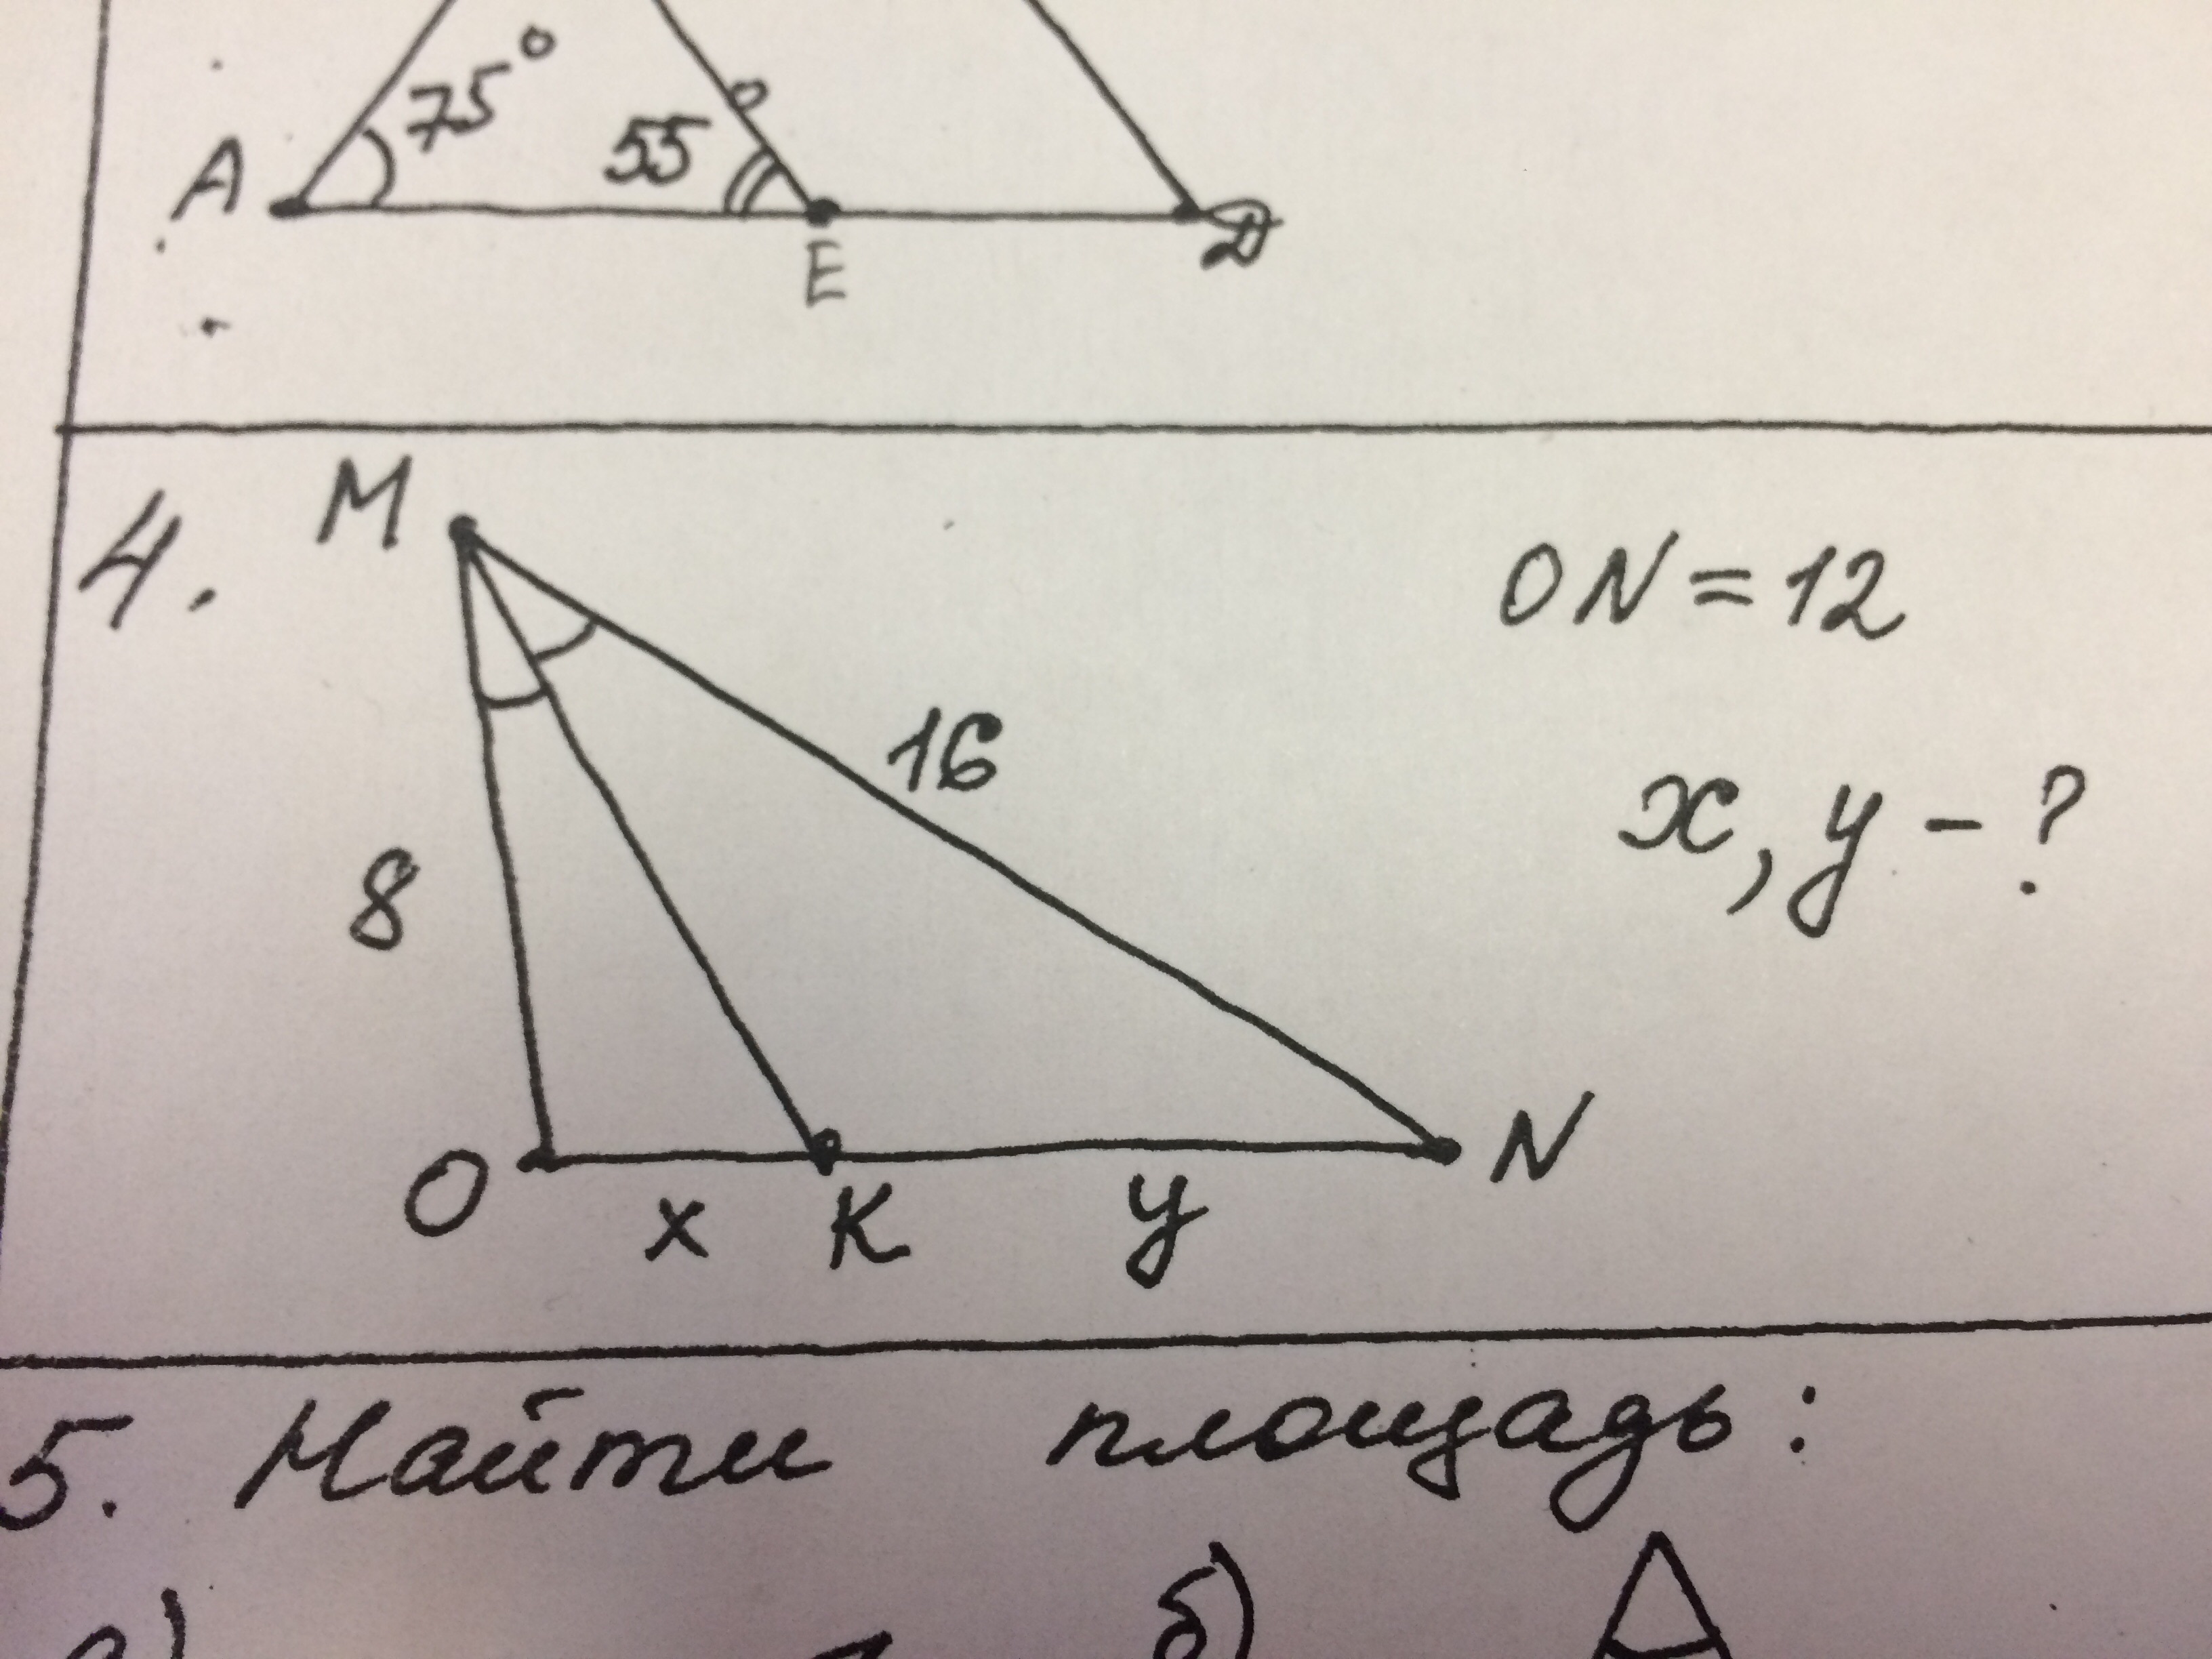 75°
A 55
E D
4. M ON = 12
16 x, y - ?
8
O x K y N
5. Найти площадь:
а) б)